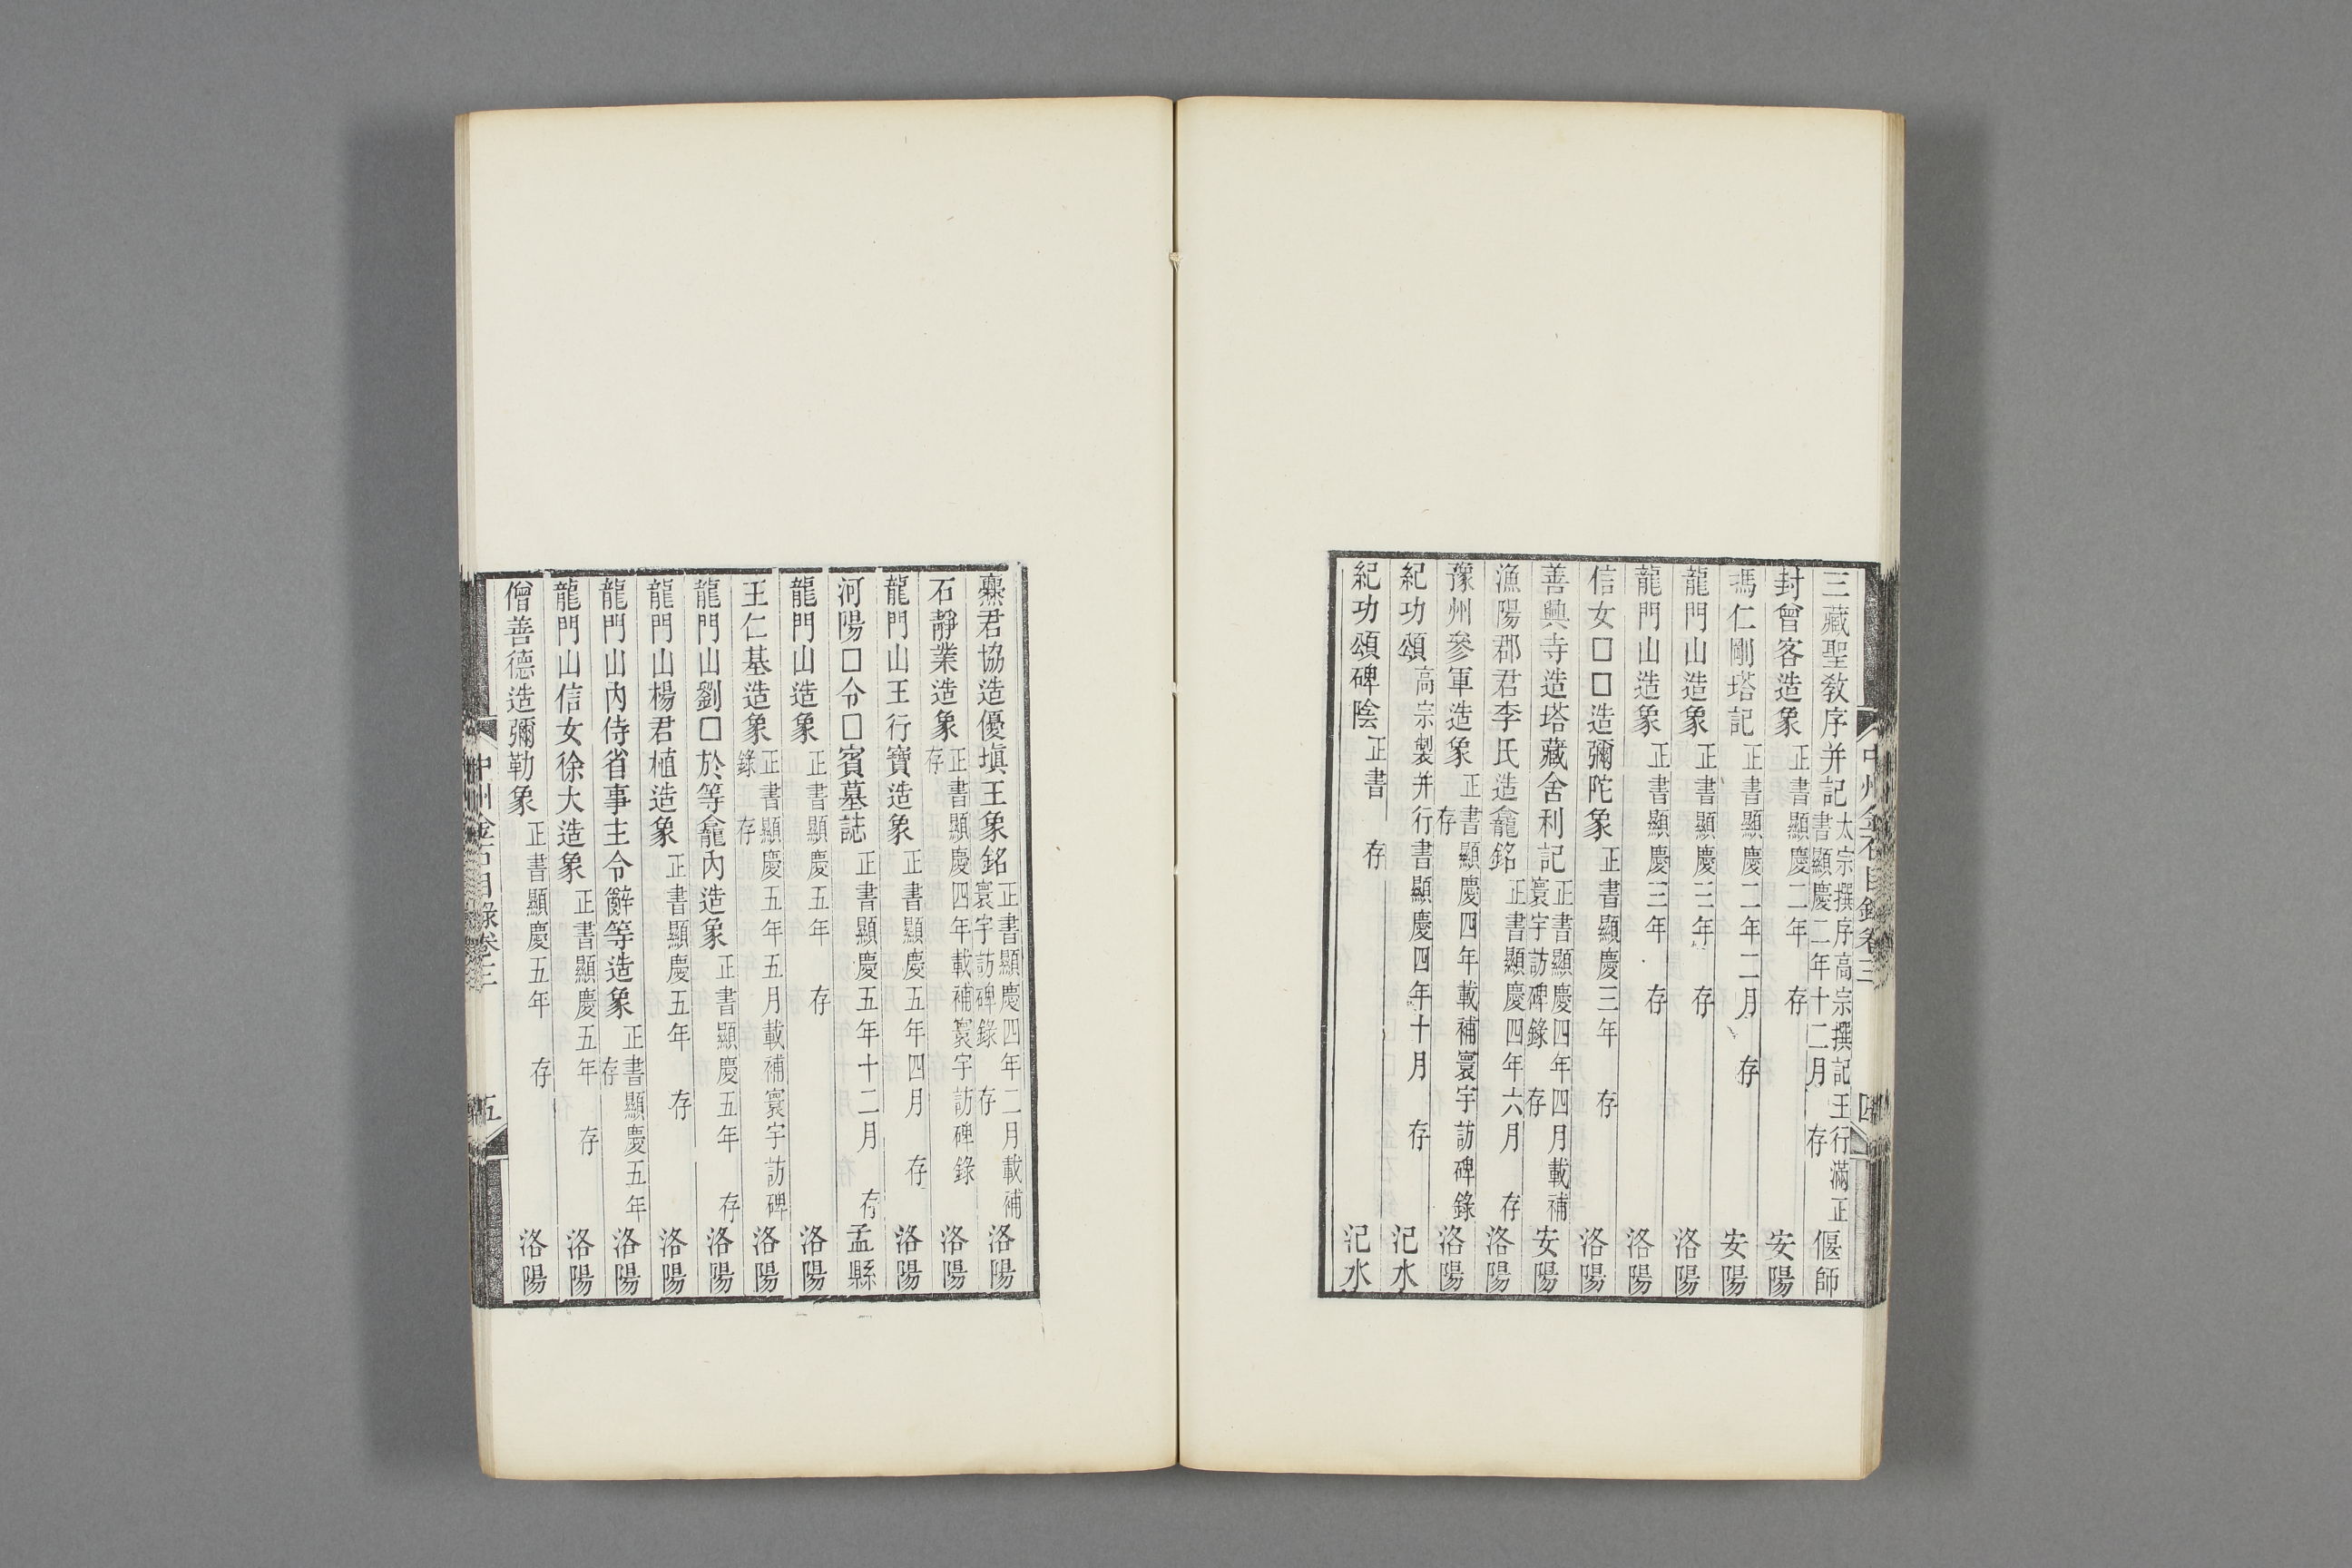 三藏聖教序并記太宗撰序高宗撰記王行滿正書顯慶二年十二月 存 偃師
封曾客造象正書顯慶二年 存 安陽
馮仁剛塔記正書顯慶二年二月 存 安陽
龍門山造象正書顯慶三年 存 洛陽
龍門山造象正書顯慶三年 存 洛陽
信女□□造彌陀象正書顯慶三年 存 洛陽
善興寺造塔藏舍利記正書顯慶四年四月載補寰宇訪碑錄 存 安陽
漁陽郡君李氏造龕銘正書顯慶四年六月 存 洛陽
豫州參軍造象正書顯慶四年載補寰宇訪碑錄 存 洛陽
紀功頌高宗製并行書顯慶四年十月 存 汜水
紀功頌碑陰正書 存 汜水
中州金石目錄卷三 四
爨君協造優塡王象銘正書顯慶四年二月載補寰宇訪碑錄 存 洛陽
石靜業造象正書顯慶四年載補寰宇訪碑錄 存 洛陽
龍門山王行寶造象正書顯慶五年四月 存 洛陽
河陽□令□賓墓誌正書顯慶五年十二月 存 孟縣
龍門山造象正書顯慶五年 存 洛陽
王仁基造象正書顯慶五年五月載補寰宇訪碑錄 存 洛陽
龍門山劉□於等龕內造象正書顯慶五年 存 洛陽
龍門山楊君植造象正書顯慶五年 存 洛陽
龍門山內侍省事主令等造象正書顯慶五年 存 洛陽
龍門山信女徐大造象正書顯慶五年 存 洛陽
僧善德造彌勒象正書顯慶五年 存 洛陽
中州金石目錄卷三 五